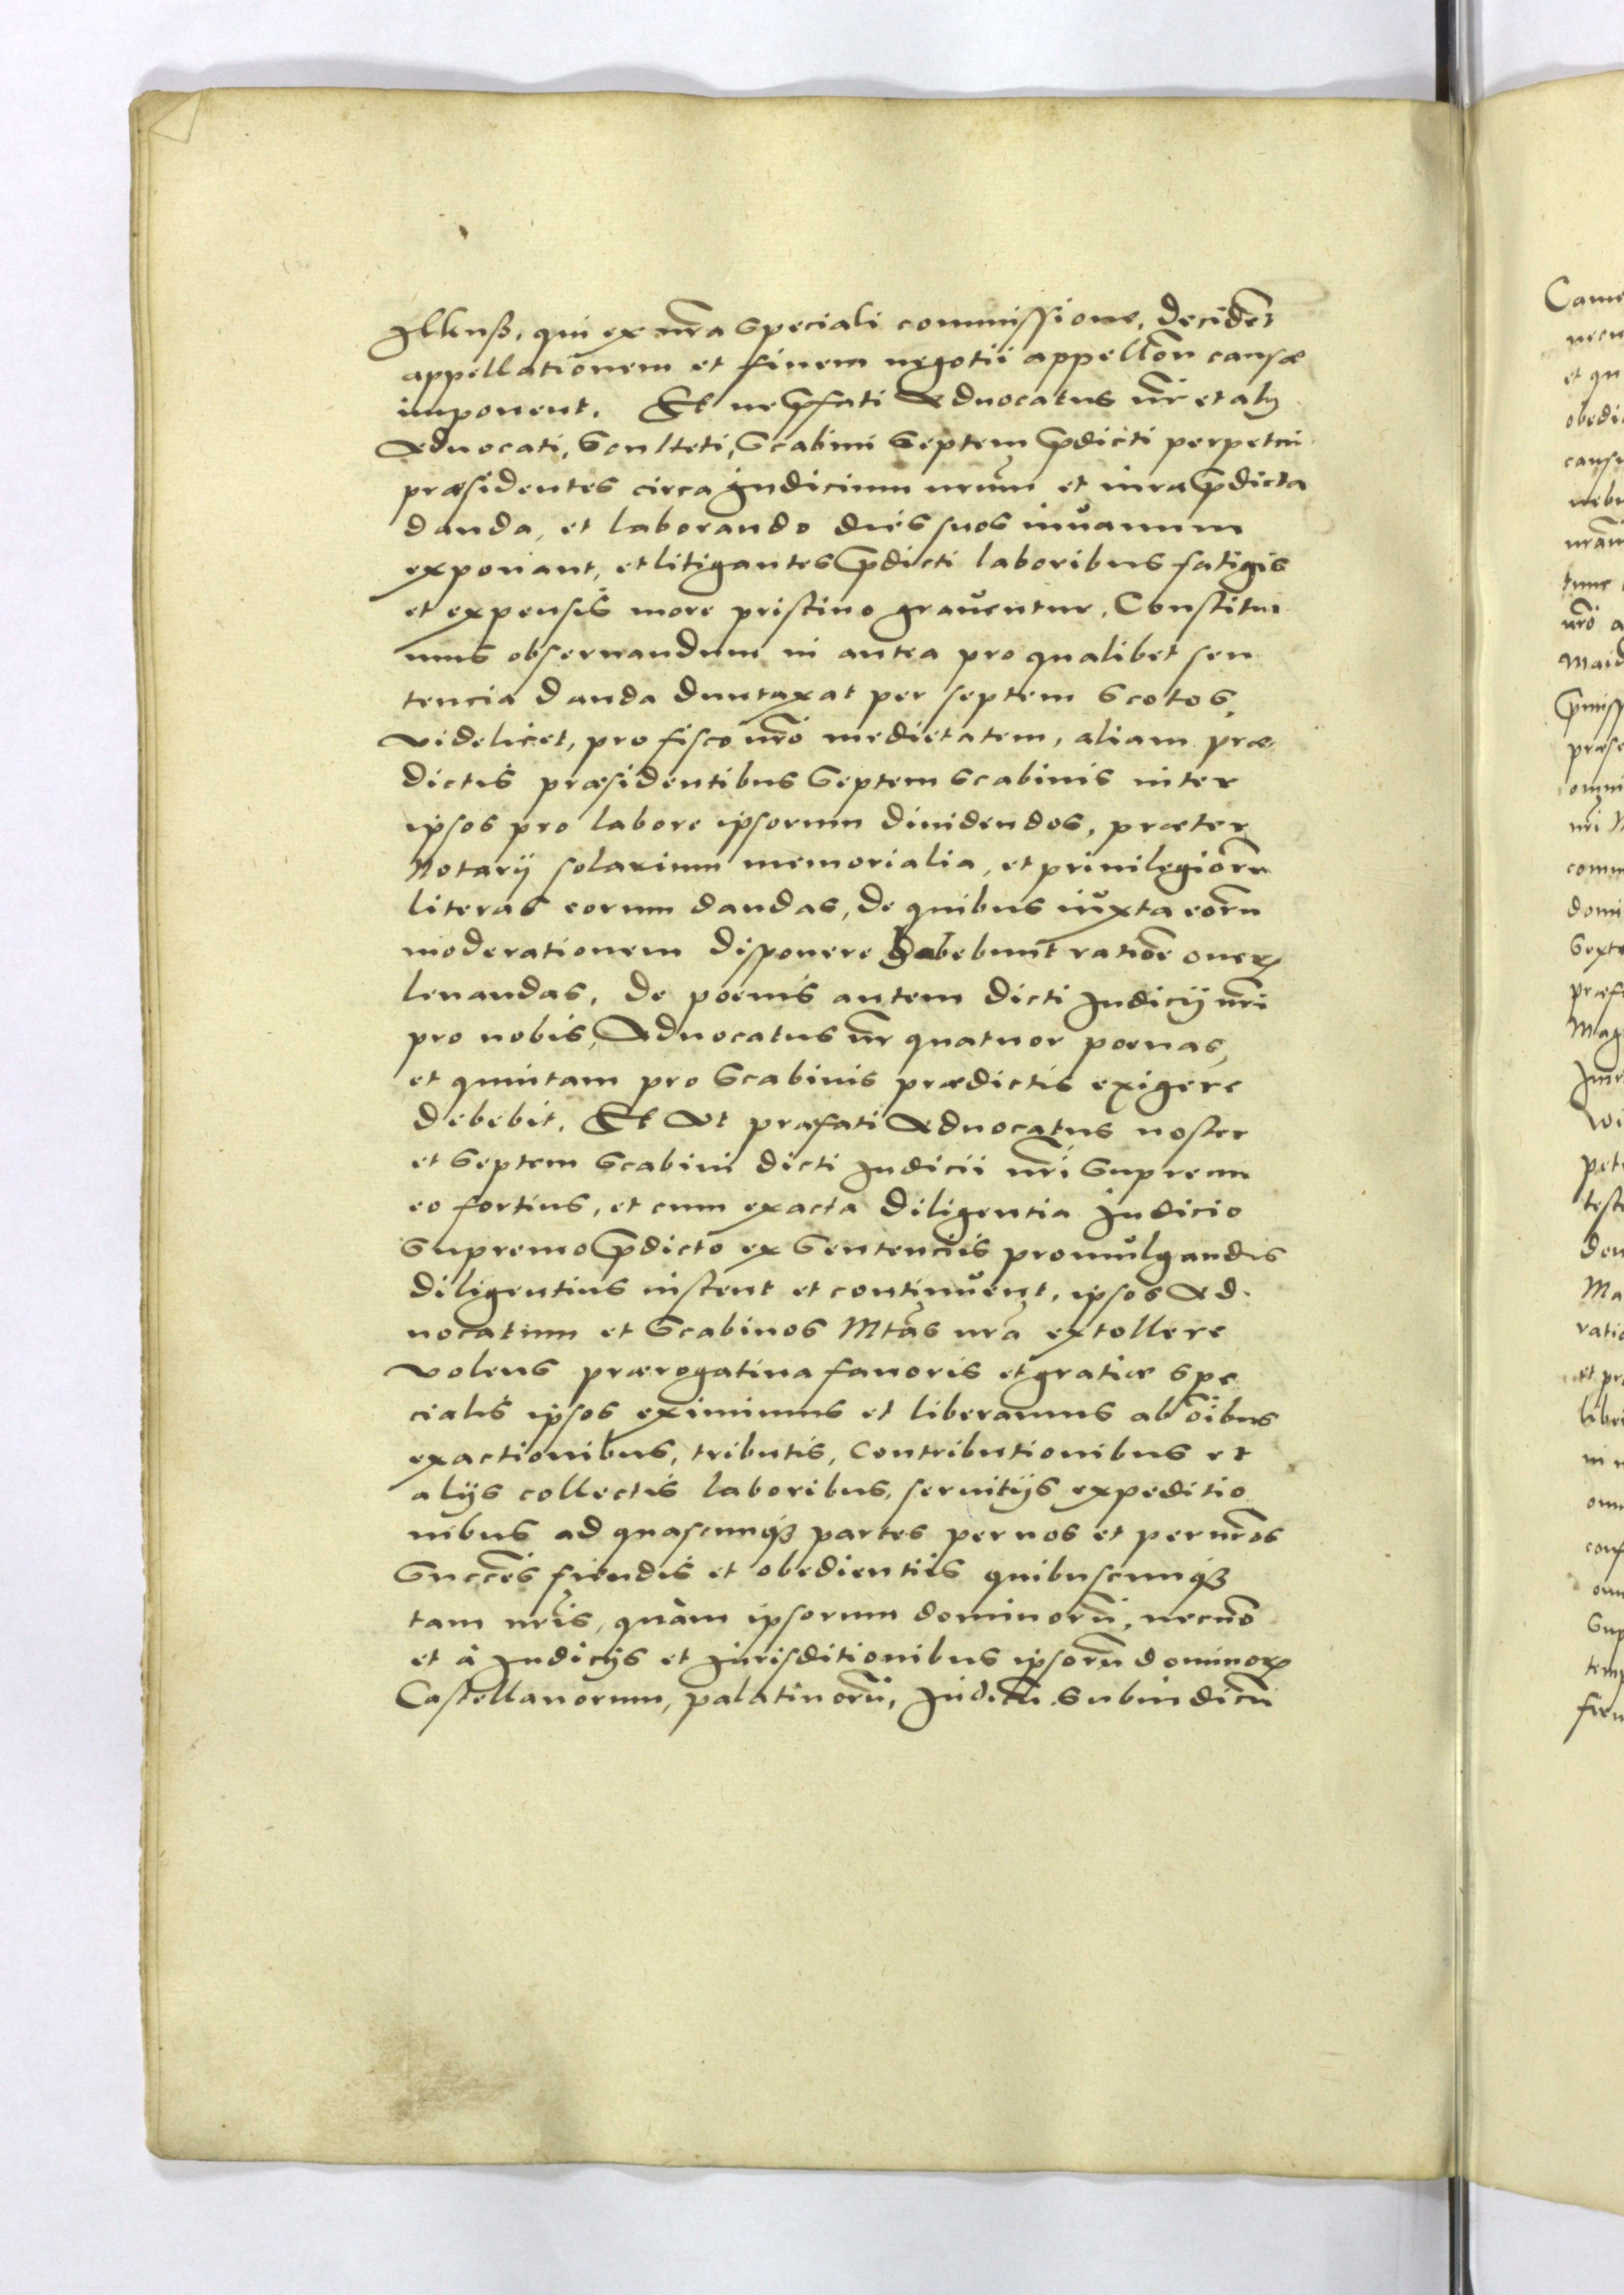 Ilkusß, qui ex nr̃a speciali commissione, decidẽt
appellationem et finem negotii appellõn causæ
imponent. Et ne p̃fati Aduocatus nr̃ et alij
Aduocati, Sculteti, Scabini Septem p̃dicti perpetui
præsidentes circa Iudicium nrũm et iura p̃dicta
danda, et laborando dies suos inuanum
exponant, et litigantes p̃dicti laboribus fatigis
et expensis more pristino grauentur, Constitui
mus obseruandum in antea pro qualibet sen
tencia danda duntaxat per septem scotos,
Videlicet, pro fisco nr̃o medietatem, aliam præ
dictis præsidentibus Septem Scabinis inter
ipsos pro labore ipsorum diuidendos, præter
Notarij solarium memorialia, et priuilegiorũ
literas eorum dandas, de quibus iuxta eorũ
moderationem disponere habebunt ratiõe onerꝝ
leuandas, De poenis autem dicti Iudicij nr̃i
pro nobis, Aduocatus nr̃ quatuor poenas,
et quintam pro Scabinis prædictis exigere
debebit. Et Vt præfati Aduocatus noster
et Septem Scabini dicti Iudicii nr̃i Supremi
eo fortius, et cum exacta diligentia Iudicio
Supremo p̃dicto ex Sentenciis promulgandis
diligentius instent et continuent, ipsos Ad
uocatum et Scabinos Mtãs nr̃a extollere
volens prærogatiua fauoris et gratiæ spe
cialis ipsos eximimus et liberamus ab õibus
exactionibus, tributis, Contributionibus et
alijs collectis laboribus, seruitijs expeditio
nibus ad quascunqȝ partes per nos et per nr̃os
Succẽs fiendis et obedientiis quibuscunqȝ
tam nr̃is, quàm ipsorum dominorũ, necnõ
et à Iudicijs et Iurisditionibus ipsorũ dominorꝝ
Castellanorum, palatinorũ, Iudicũ Subiudicũ